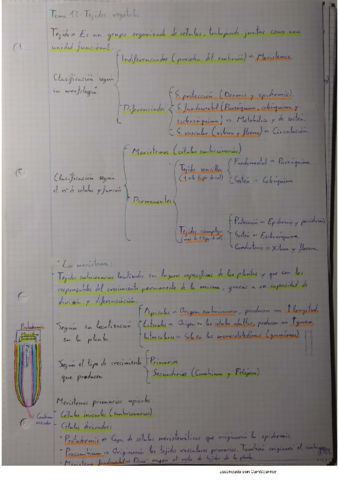 Tema 12: Tejidos vegetales
Tejido = Es un grupo organizado de células, trabajando juntas como una
unidad funcional.
Indiferenciados (proceden del embrión) = Meristemos
Clasificación según
su morfología
Diferenciados
S. protección (Peridermis y epidermis)
S. fundamental (Parénquima, colénquima y
esclerénquima) => Metabólica y de sostén.
S. vascular (xilema y floema) => Circulación
Meristemos (células embrionarias)
Clasificación según
el nº de células y función
Permanentes
Tejidos sencillos
(1 solo tipo de cel)
Fundamental = Parénquima
Sostén = Colénquima
Tejidos complejos
Protección = Epidermis y peridermis
Sostén = Esclerénquima
Conductores = Xilema y floema
Los meristemos:
Tejidos embrionarios localizados en lugares específicos de las plantas y que son los
responsables del crecimiento permanente de la misma, gracias a su capacidad de
división y diferenciación.
Según su localización
en la planta
Apicales = Origen embrionario, producen un ↑ longitud
Laterales = Origen en las células adultas, producen un ↑ grosor
Intercalares = Solo en las monocotiledóneas (gramíneas)
Según el tipo de crecimiento
que producen
Primarios
Secundarios (Cambium y Felógeno)
Meristemos primarios apicales
Células iniciales (embrionarias)
Células derivadas:
Protodermis = Capa de células meristemáticas que originarán la epidermis
Procambium = Originarán los tejidos vasculares primarios. También originan el cambium
Meristemo fundamental = Dan origen al resto de tejidos de la planta
Protodermis